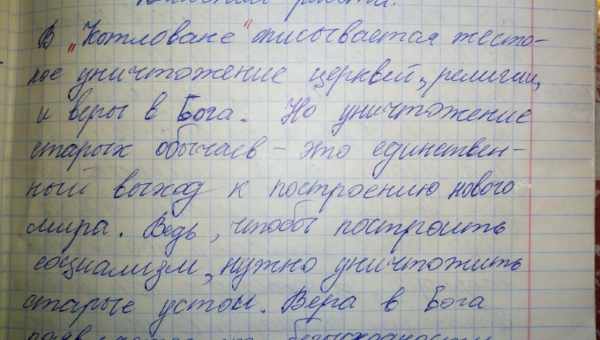 работа.
В "Котловане" описывается жесто-
кое уничтожение церквей, религии,
и веры в Бога. Но уничтожение
старых обычаев - это единствен-
ный выход к построению нового
мира. Ведь, чтобы построить
социализм, нужно уничтожить
старые устои. Вера в Бога